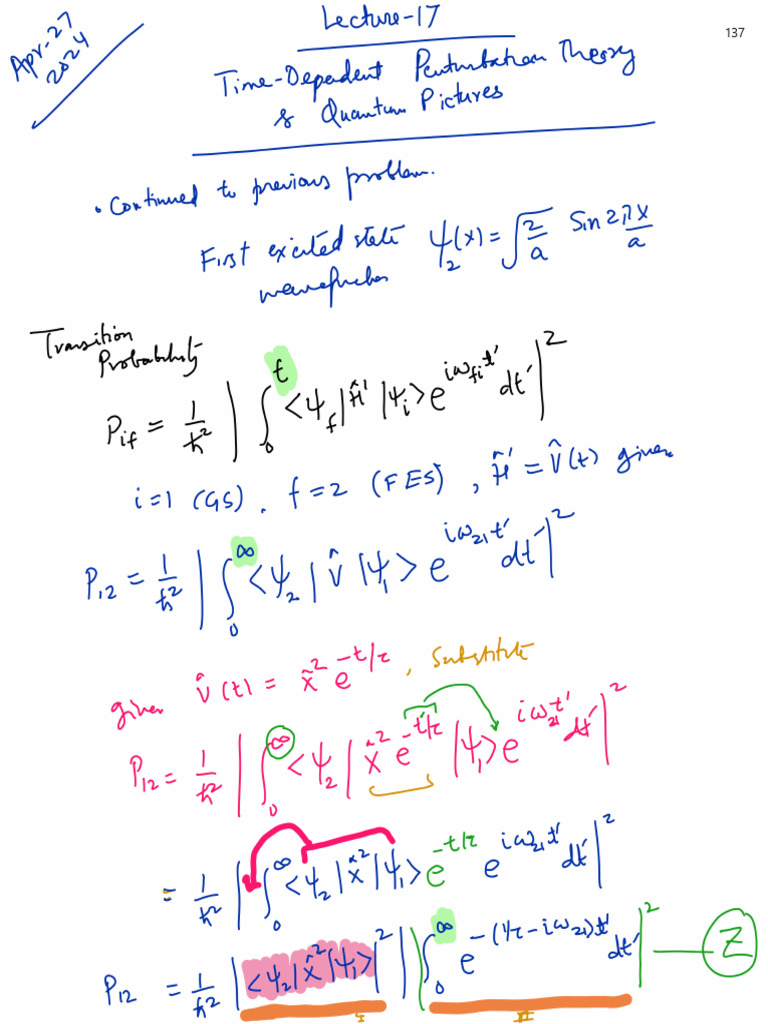 Lecture-17
137
Apr-27
2024
Time-Dependent Perturbation Theory
& Quantum Pictures
• Continued to previous problem.
First excited state ψ₂(x) = √(2/a) Sin 2πx/a
wavefunction
Transition
Probability
P_if = 1/ħ² | ∫₀^t <ψ_f|Ĥ'|ψ_i> e^{iω_fi t'} dt' |²
i=1 (GS), f=2 (FES), Ĥ' = V̂(t) given
P₁₂ = 1/ħ² | ∫₀^∞ <ψ₂|V̂|ψ₁> e^{iω₂₁t'} dt' |²
given V̂(t) = x̂² e^{-t/τ}, Substitute
P₁₂ = 1/ħ² | ∫₀^∞ <ψ₂|x̂² e^{-t'/τ}|ψ₁> e^{iω₂₁t'} dt' |²
= 1/ħ² | ∫₀^∞ <ψ₂|x̂²|ψ₁> e^{-t/τ} e^{iω₂₁t'} dt' |²
P₁₂ = 1/ħ² |<ψ₂|x̂²|ψ₁>|² | ∫₀^∞ e^{-(1/τ-iω₂₁)t'} dt' |² — Z
I II